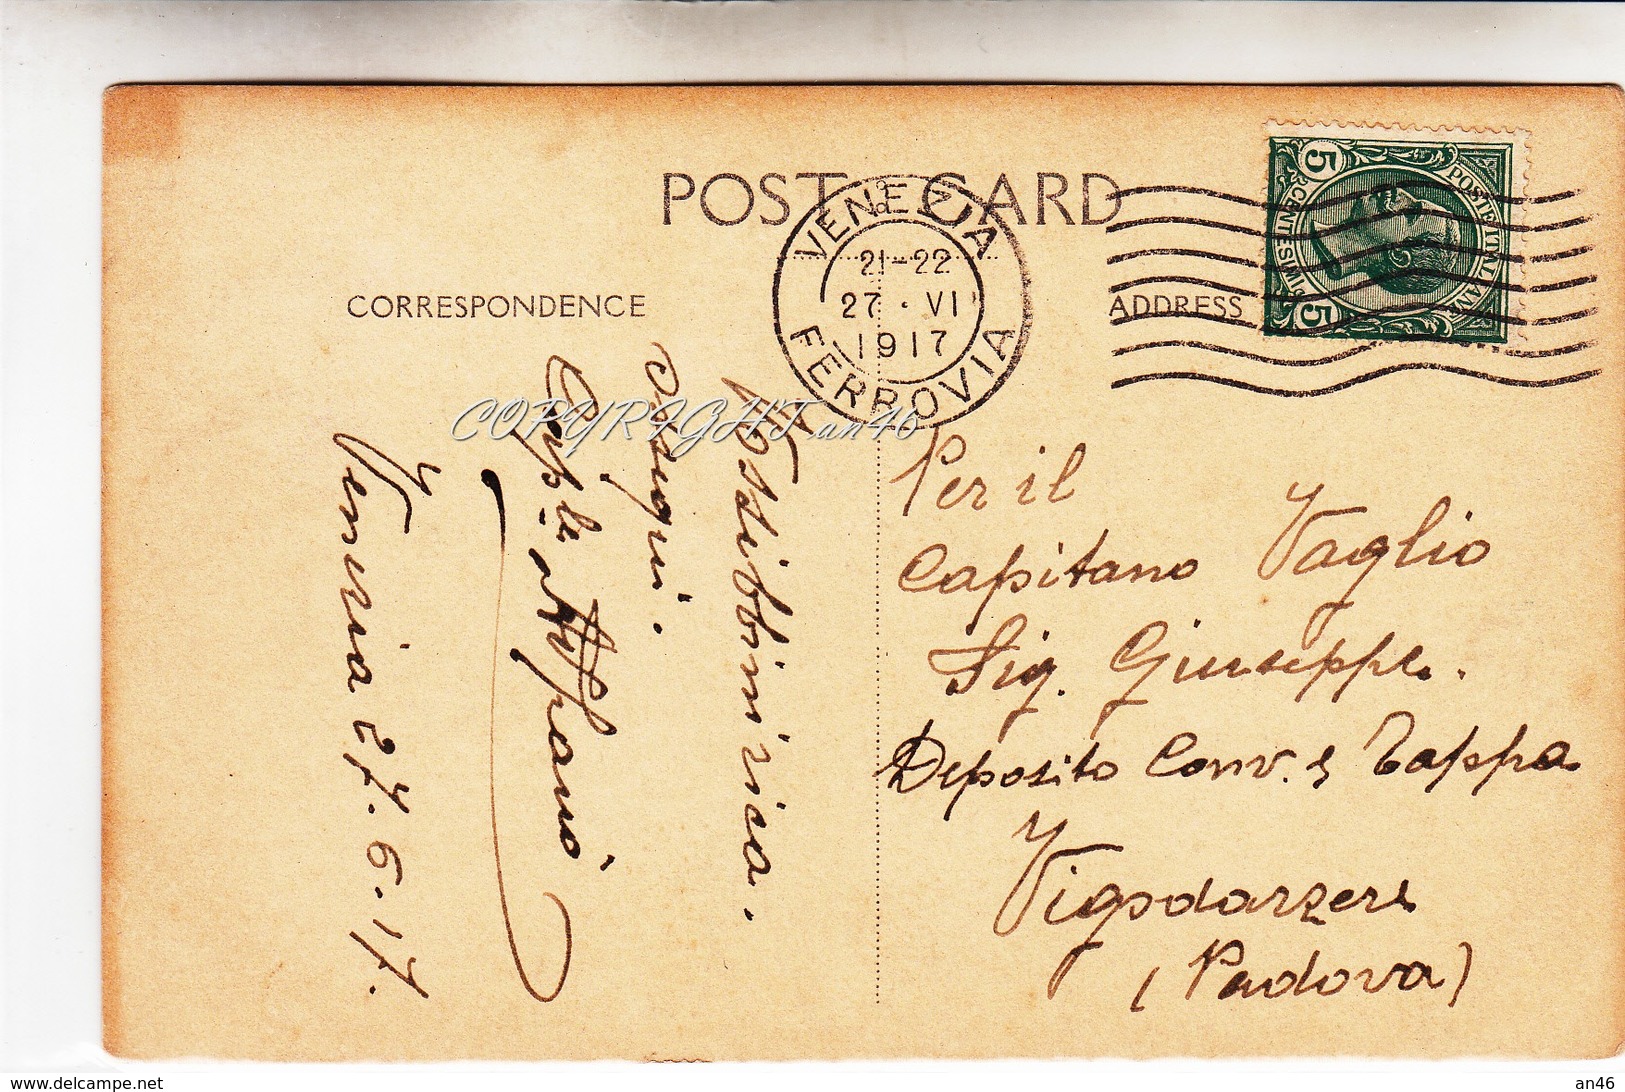 POST CARD
CORRESPONDENCE
ADDRESS
VENEZIA
21-22
27·VI
1917
FERROVIA
POSTE ITALIANE
5 CENTESIMI 5
COPYRIGHT an46
Per il
Capitano Vaglio
Sig. Giuseppe.
Deposito Conv. e Tappa
Vigodarzere
(Padova)
Ossequi.
Venezia 27.6.17.
www.delcampe.net
an46